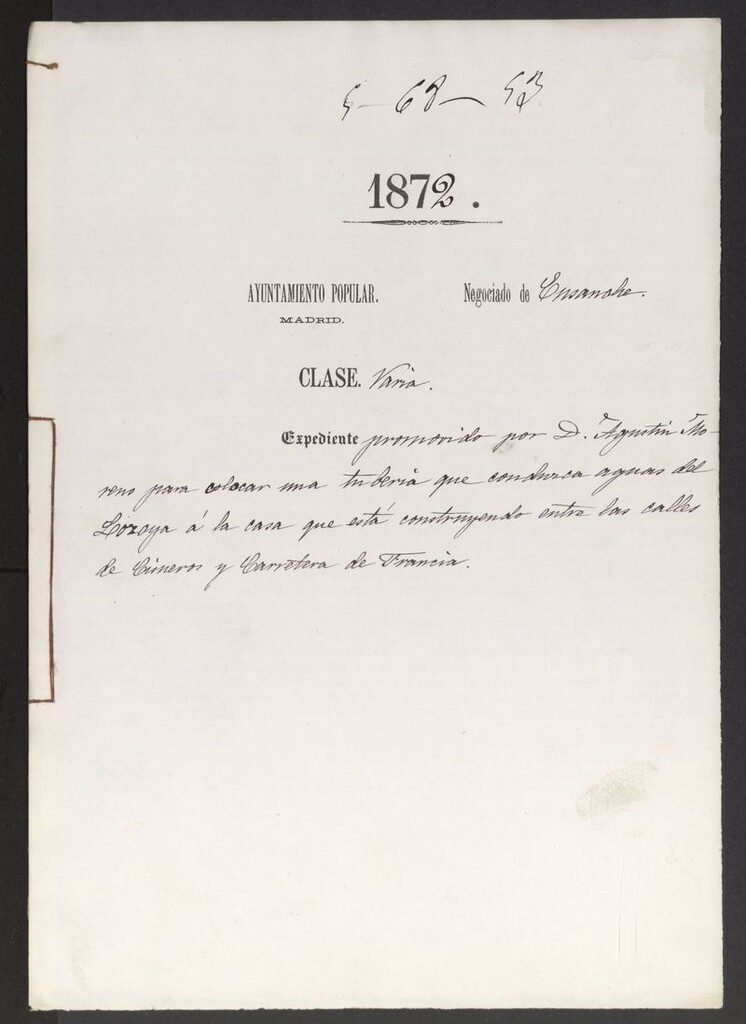 5-68-53
1872.
AYUNTAMIENTO POPULAR.
MADRID.
Negociado de Ensanche.
CLASE. Varia.
Expediente promovido por D. Agustin Mo-
reno para colocar una tuberia que conduzca aguas del
Lozoya á la casa que está construyendo entre las calles
de Cisneros y Carretera de Francia.